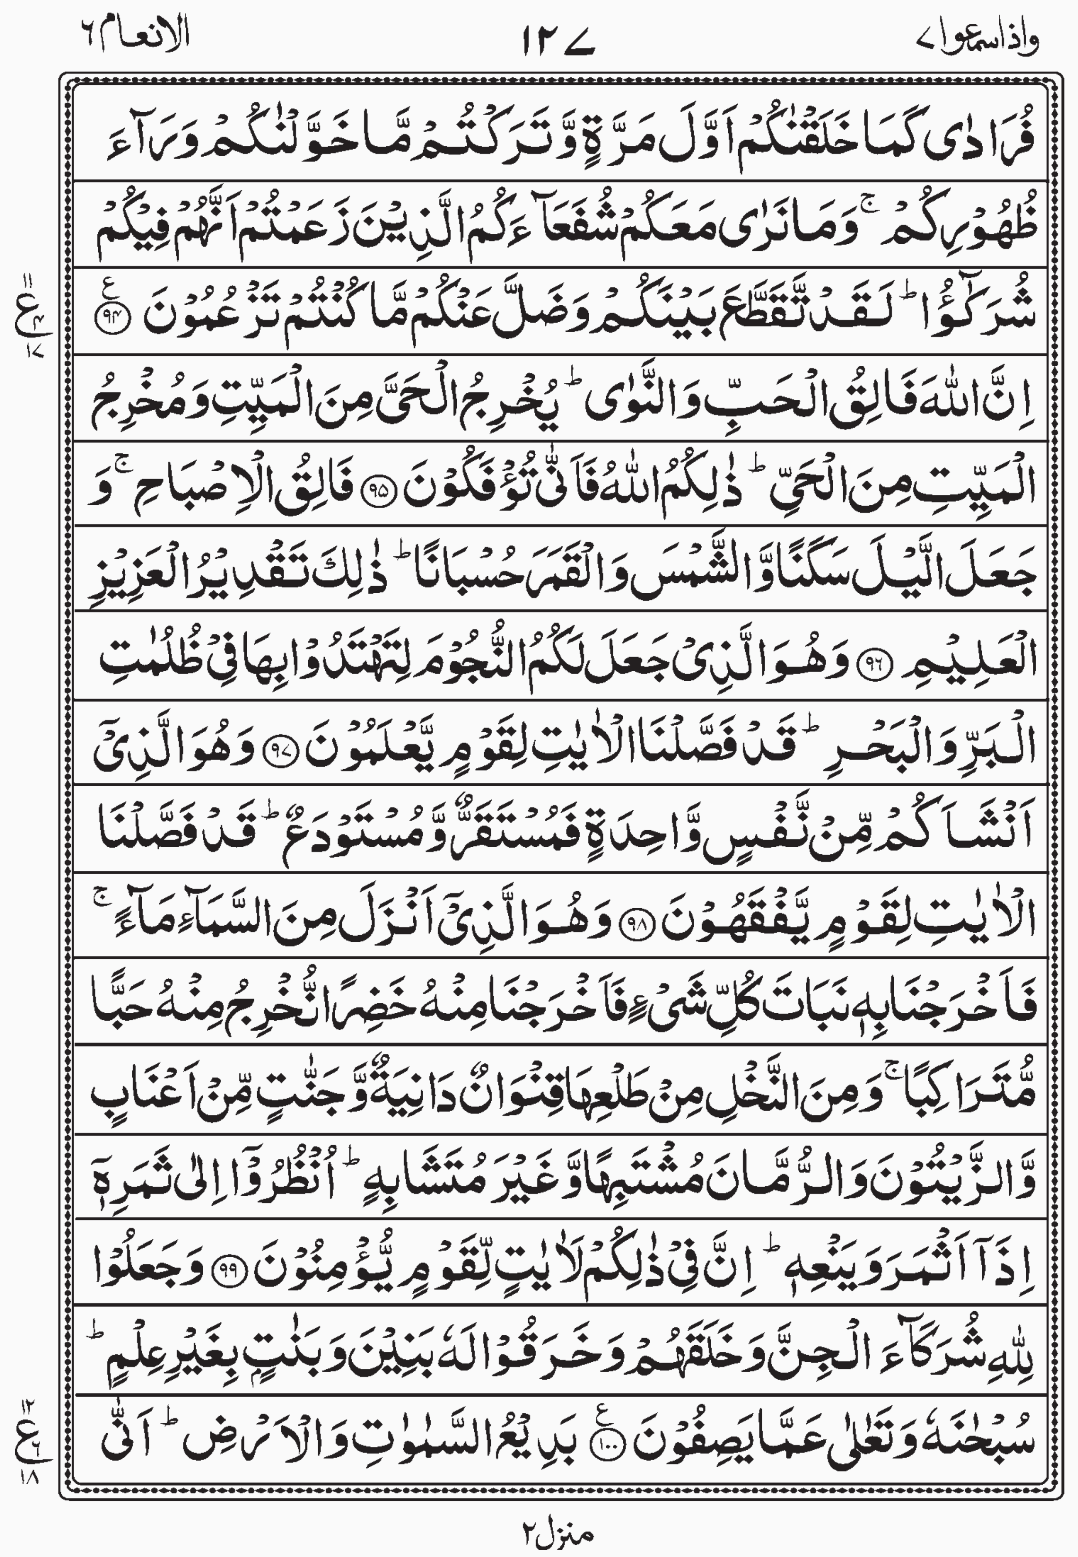 واذاسمعوا ٧
١٢٧
الانعام ٦
فُرَادٰى كَمَا خَلَقْنٰكُمْ اَوَّلَ مَرَّةٍ وَّتَرَكْتُمْ مَّا خَوَّلْنٰكُمْ وَرَآءَ
ظُهُوْرِكُمْ ۚ وَمَا نَرٰى مَعَكُمْ شُفَعَآءَكُمُ الَّذِيْنَ زَعَمْتُمْ اَنَّهُمْ فِيْكُمْ
شُرَكٰٓؤُا ؕ لَقَدْ تَّقَطَّعَ بَيْنَكُمْ وَضَلَّ عَنْكُمْ مَّا كُنْتُمْ تَزْعُمُوْنَ ۧ ﴿۹۴﴾
١١ ع ۴ ١٧
اِنَّ اللّٰهَ فَالِقُ الْحَبِّ وَالنَّوٰى ؕ يُخْرِجُ الْحَىَّ مِنَ الْمَيِّتِ وَمُخْرِجُ
الْمَيِّتِ مِنَ الْحَىِّ ؕ ذٰلِكُمُ اللّٰهُ فَاَنّٰى تُؤْفَكُوْنَ ﴿۹۵﴾ فَالِقُ الْاِصْبَاحِ ۚ وَ
جَعَلَ الَّيْلَ سَكَنًا وَّالشَّمْسَ وَالْقَمَرَ حُسْبَانًا ؕ ذٰلِكَ تَقْدِيْرُ الْعَزِيْزِ
الْعَلِيْمِ ﴿۹۶﴾ وَهُوَ الَّذِىْ جَعَلَ لَكُمُ النُّجُوْمَ لِتَهْتَدُوْا بِهَا فِىْ ظُلُمٰتِ
الْبَرِّ وَالْبَحْرِ ؕ قَدْ فَصَّلْنَا الْاٰيٰتِ لِقَوْمٍ يَّعْلَمُوْنَ ﴿۹۷﴾ وَهُوَ الَّذِىْۤ
اَنْشَاَكُمْ مِّنْ نَّفْسٍ وَّاحِدَةٍ فَمُسْتَقَرٌّ وَّمُسْتَوْدَعٌ ؕ قَدْ فَصَّلْنَا
الْاٰيٰتِ لِقَوْمٍ يَّفْقَهُوْنَ ﴿۹۸﴾ وَهُوَ الَّذِىْۤ اَنْزَلَ مِنَ السَّمَآءِ مَآءً ۚ
فَاَخْرَجْنَا بِهٖ نَبَاتَ كُلِّ شَىْءٍ فَاَخْرَجْنَا مِنْهُ خَضِرًا نُّخْرِجُ مِنْهُ حَبًّا
مُّتَرَاكِبًا ۚ وَمِنَ النَّخْلِ مِنْ طَلْعِهَا قِنْوَانٌ دَانِيَةٌ وَّجَنّٰتٍ مِّنْ اَعْنَابٍ
وَّالزَّيْتُوْنَ وَالرُّمَّانَ مُشْتَبِهًا وَّغَيْرَ مُتَشَابِهٍ ؕ اُنْظُرُوْۤا اِلٰى ثَمَرِهٖۤ
اِذَاۤ اَثْمَرَ وَيَنْعِهٖ ؕ اِنَّ فِىْ ذٰلِكُمْ لَاٰيٰتٍ لِّقَوْمٍ يُّؤْمِنُوْنَ ﴿۹۹﴾ وَجَعَلُوْا
لِلّٰهِ شُرَكَآءَ الْجِنَّ وَخَلَقَهُمْ وَخَرَقُوْا لَهٗ بَنِيْنَ وَبَنٰتٍۭ بِغَيْرِ عِلْمٍ ؕ
سُبْحٰنَهٗ وَتَعٰلٰى عَمَّا يَصِفُوْنَ ۧ ﴿۱۰۰﴾ بَدِيْعُ السَّمٰوٰتِ وَالْاَرْضِ ؕ اَنّٰى
١٢ ع ۶ ١٨
منزل ۲